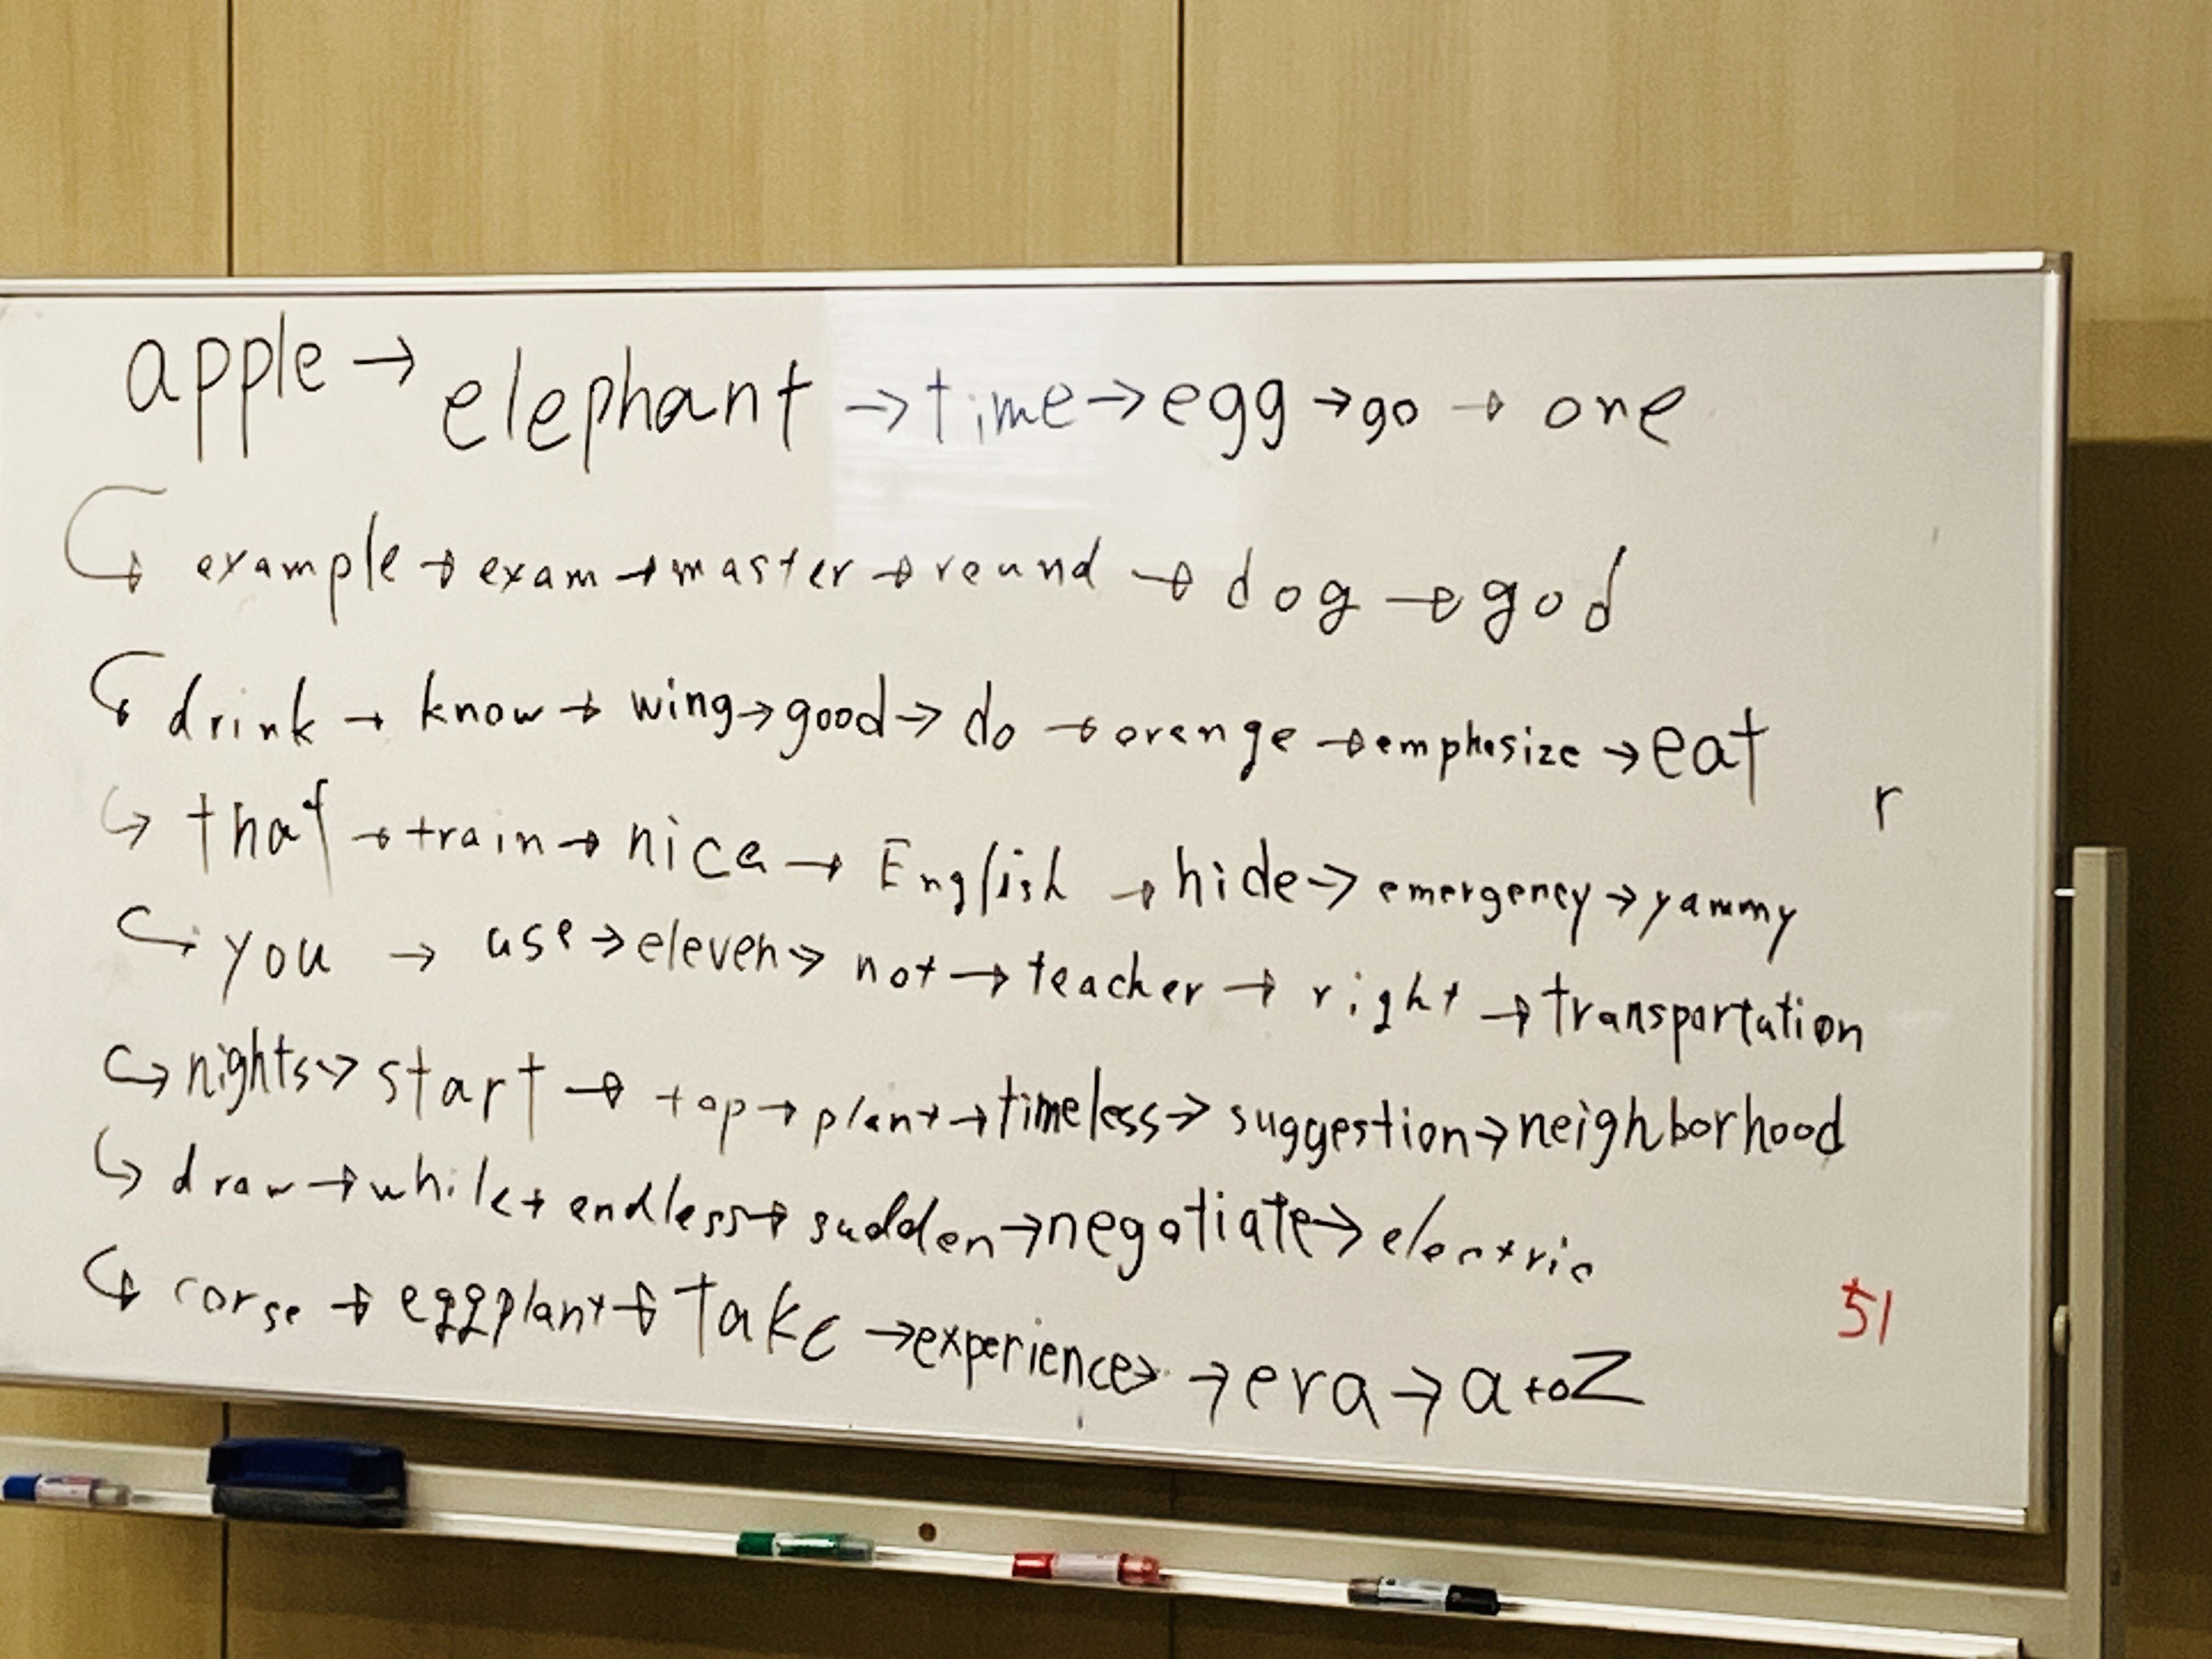 apple → elephant → time → egg → go → one
↪ example → exam → master → round → dog → god
↪ drink → know → wing → good → do → orenge → emphasize → eat
r
↪ that → train → nice → English → hide → emergency → yammy
↪ you → use → eleven → not → teacher → right → transportation
↪ nights → start → top → plant → timeless → suggestion → neighborhood
↪ draw → while → endless → sudden → negotiate → electric
↪ corse → eggplant → take → experience → → era → a to Z
51